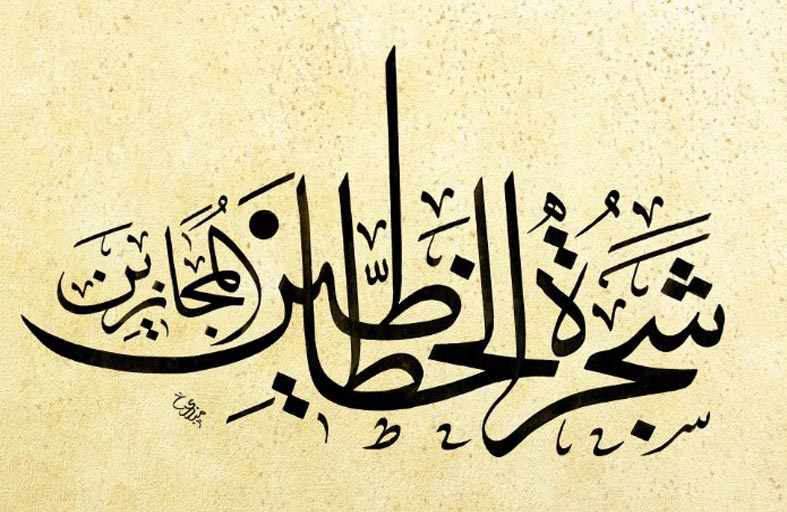 شَجَرَةُ الخطّاطِين المُجَازين